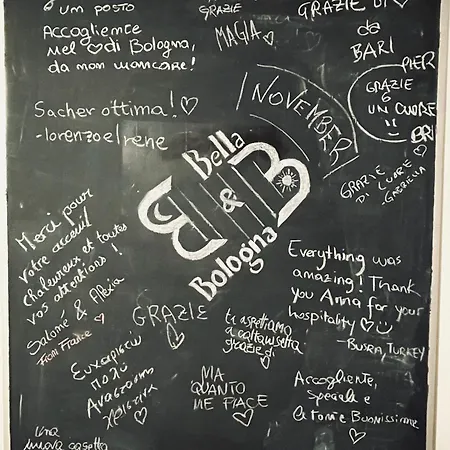 un posto
Accogliente
nel ♡ di Bologna,
da non mancare!
GRAZIE
MAGIA ♡
GRAZIE DI ♡
da
BARI
PIER
GRAZIE
UN CUORE
BRI
GRAZIE
DI CUORE
-GABRIELLA
Sacher ottima! ♡
-lorenzo e Irene
NOVEMBER
Bella
B&B
Bologna
Merci pour
votre accueil
chaleureux et toutes
vos attentions!
Salomé & Alexia
From France ♡
Everything was
amazing! Thank
you Anna for your
hospitality ♡☺
-BUSRA, TURKEY
GRAZIE
♡
ti aspettiamo
a caltanissetta
grazie di
♡
Ευχαριστώ
πολύ
Αναστάση
Χριστίνα
♡
MA
QUANTO
ME PIACE
♡
Accogliente,
Speciale e
le torte Buonissime
♡
Una
nuova casetta